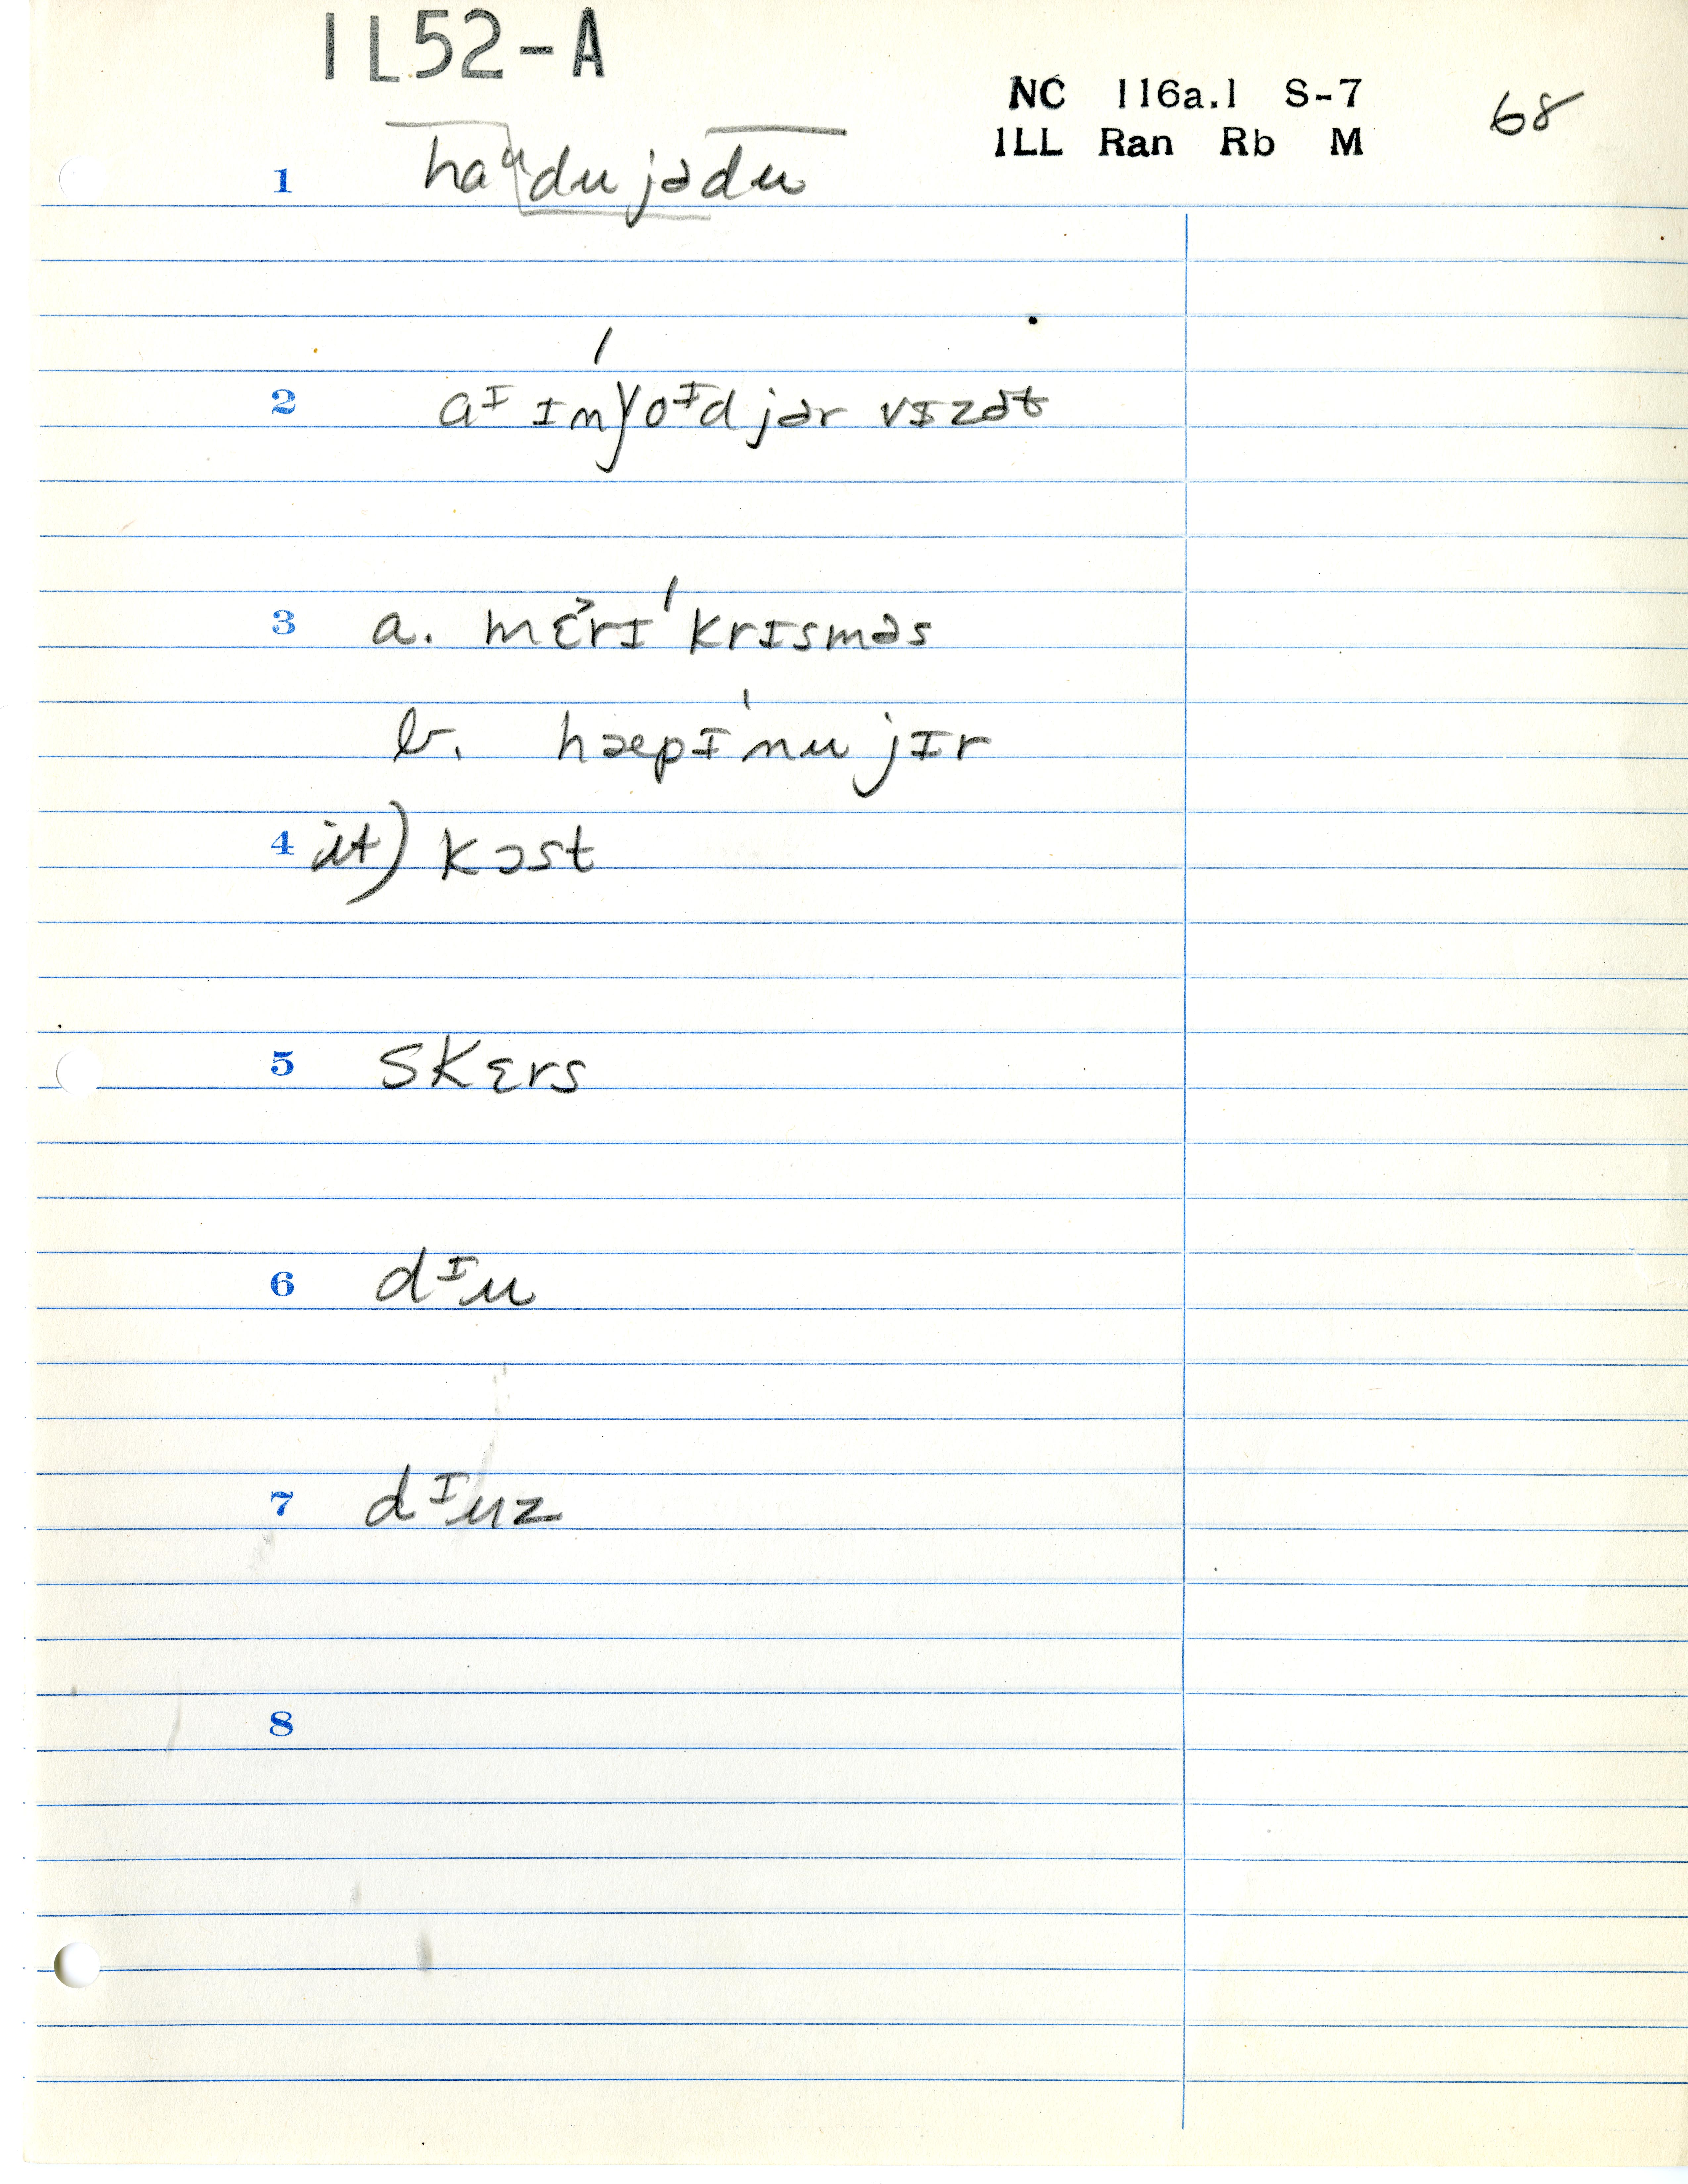 1L52-A
NC 116a.1 S-7
ILL Ran Rb M
68
1 haᵘdujədu
2 aᴵ ɪnˈjoᴵd jər vɪzət
3 a. mɛ˃rɪ ˈkrɪsməs
b. hæpɪ ˈnu jɪr
4 it) kɔst
5 skɛrs
6 dᴵu
7 dᴵuz
8